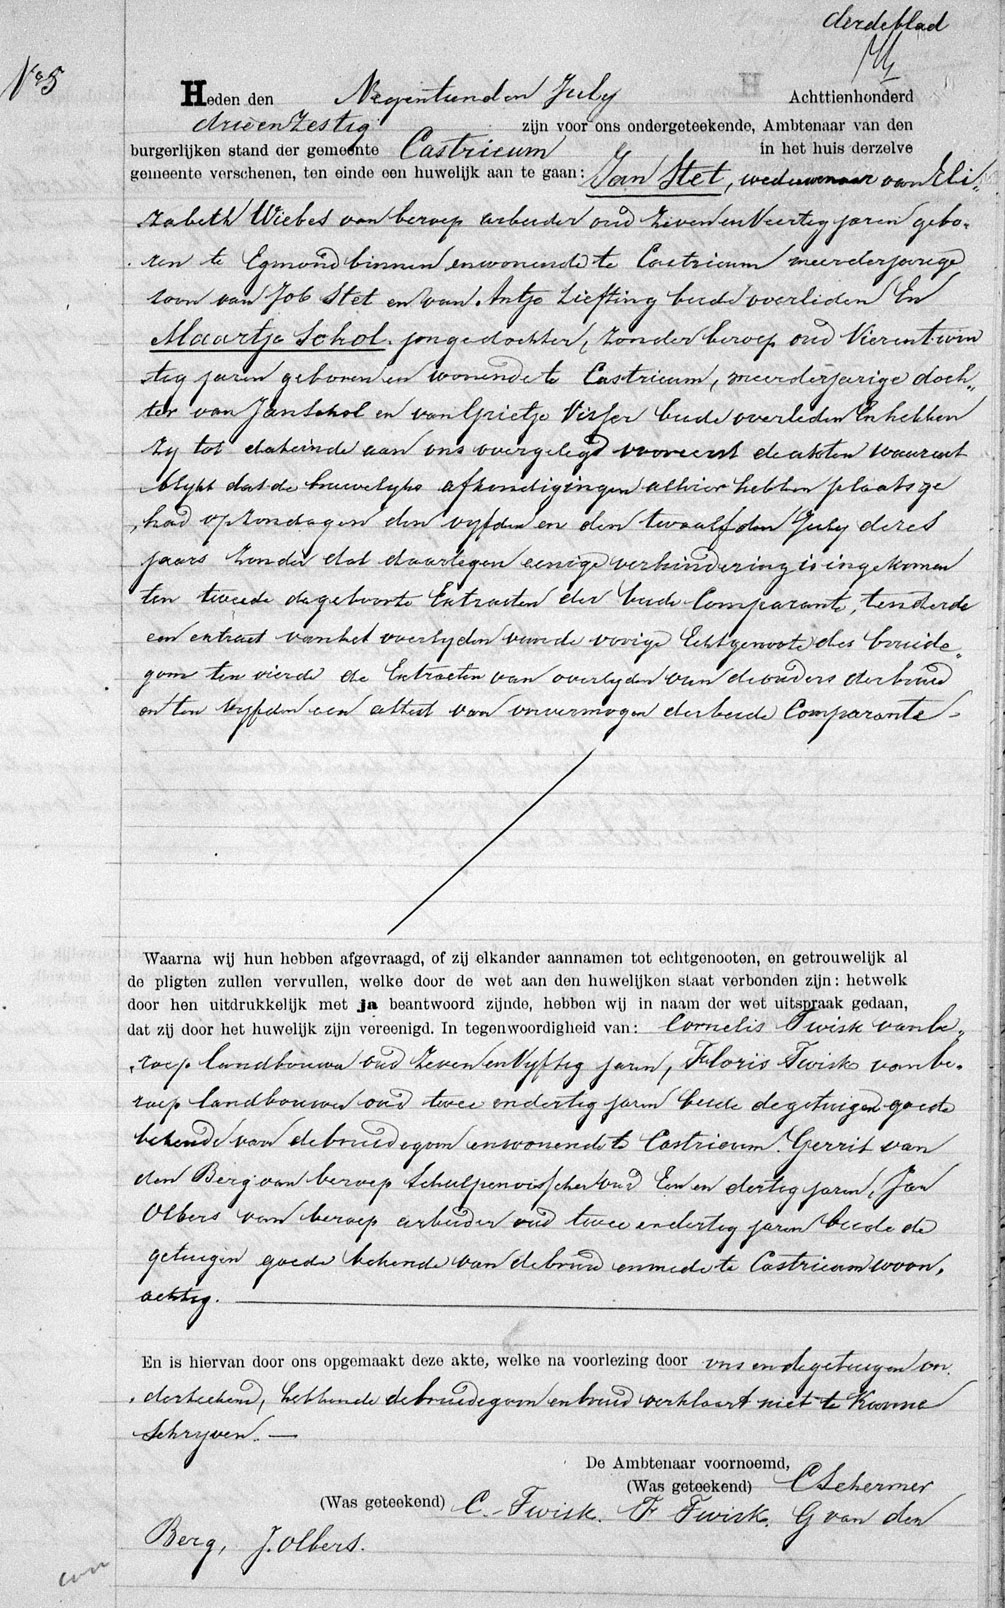 derdeblad
No 5
Heden den Negentienden July Achttienhonderd
drieenzestig zijn voor ons ondergeteekende, Ambtenaar van den
burgerlijken stand der gemeente Castricum in het huis derzelve
gemeente verschenen, ten einde een huwelijk aan te gaan: Jan Stet, weduwenaar van Eli-
zabeth Wiebes van beroep arbeider oud Zeven en Veertig jaren gebo-
ren te Egmond binnen en wonende te Castricum meerderjarige
zoon van Job Stet en van Antje Liefting beide overleden En
Maartje Schol. jongedochter, zonder beroep oud Vierentwin
tig jaren geboren en wonende te Castricum, meerderjarige doch-
ter van Jan Schol en van Grietje Visser beide overleden En hebben
zy tot dateinde aan ons overgelegd vooreerst de akten waaruit
blykt dat de huwelyks afkondigingen alhier hebben plaats ge
had op zondagen den vyfden en den twaalfden July dezes
jaars zonder dat daartegen eenige verhindering is ingekomen
ten tweede de geboorte Extracten der beide Comparante, ten derde
een extract van het overlyden van de vorige Echtgenoote des bruide-
gom ten vierde de Extracten van overlyden van de ouders der bruid
en ten vyfden een attest van onvermogen der beide Comparante -
Waarna wij hun hebben afgevraagd, of zij elkander aannamen tot echtgenooten, en getrouwelijk al
de pligten zullen vervullen, welke door de wet aan den huwelijken staat verbonden zijn: hetwelk
door hen uitdrukkelijk met ja beantwoord zijnde, hebben wij in naam der wet uitspraak gedaan,
dat zij door het huwelijk zijn vereenigd. In tegenwoordigheid van: Cornelis Twisk van be-
roep landbouwer oud Zeven en Vyftig jaren, Floris Twisk van be-
roep landbouwer oud twee en dertig jaren beide de getuigen goede
bekende van de bruidegom en wonende te Castricum. Gerrit van
den Berg van beroep Schulpenvisscher oud Een en dertig jaren, Jan
Olbers van beroep arbeider oud twee en dertig jaren beide de
getuigen goede bekende van de bruid en mede te Castricum woon,
achtig.
En is hiervan door ons opgemaakt deze akte, welke na voorlezing door ons en de getuigen on
derteekend, hebbende de bruidegom en bruid verklaart niet te kunne
schryven. —
De Ambtenaar voornoemd,
(Was geteekend) C Schermer
(Was geteekend) C. Twisk. F Twisk. G van den
Berg, J. Olbers.